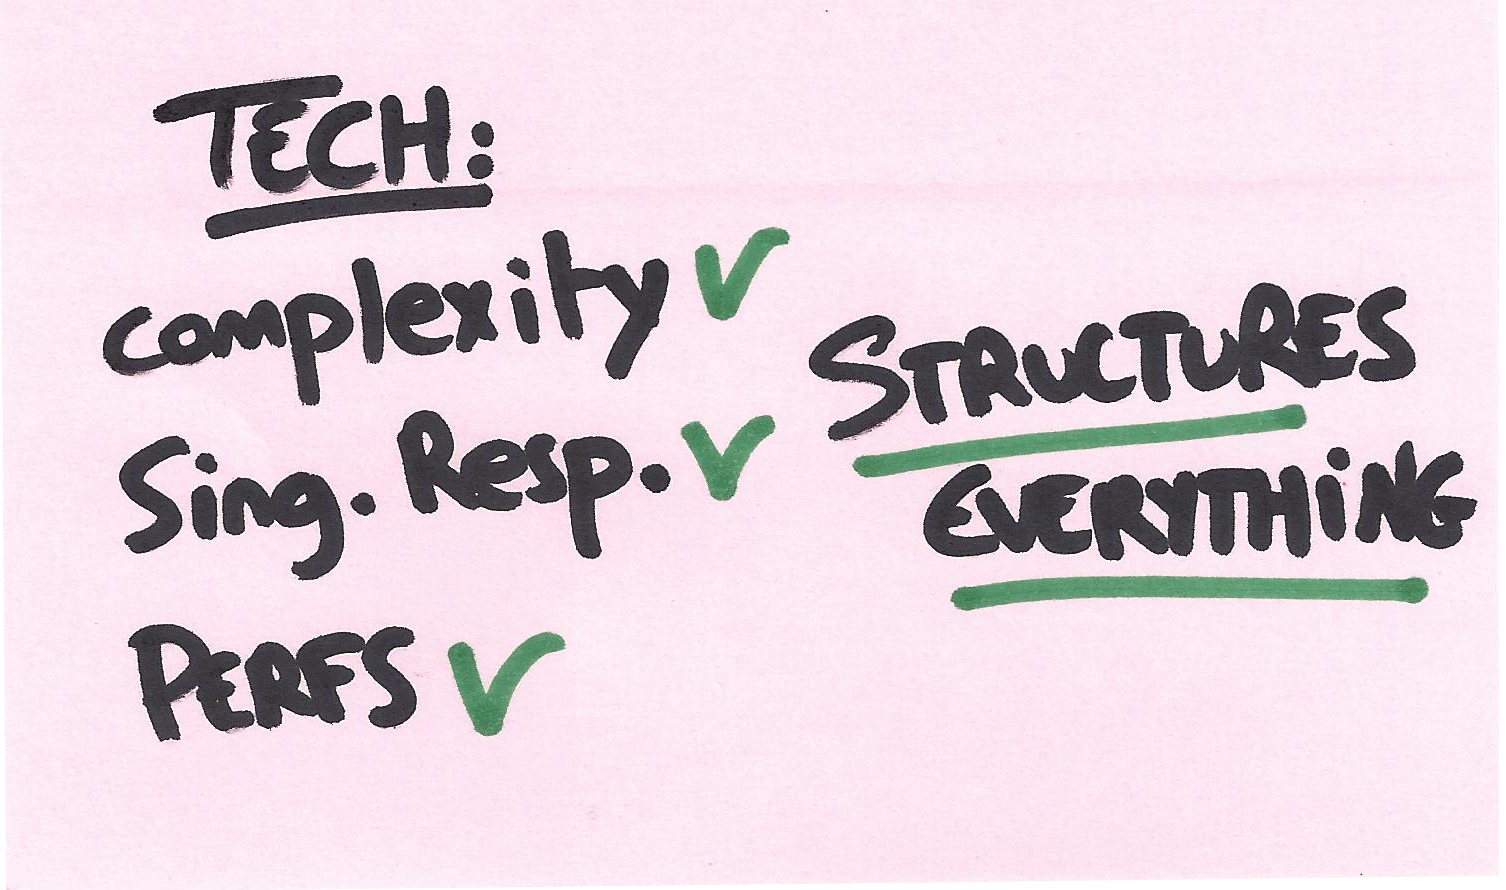 TECH:
complexity ✓
Sing. Resp. ✓
PERFS ✓
STRUCTURES
EVERYTHING